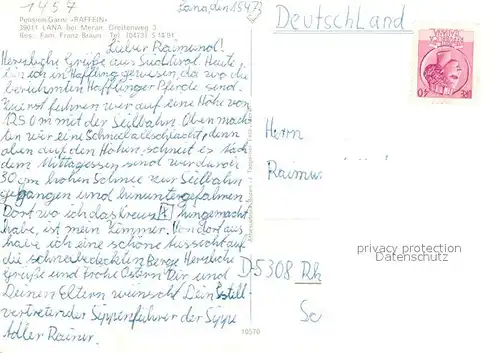 1457
Lana, den 15.4.73
Deutschland
Pension-Garni «RAFFEIN»
39011 LANA bei Meran, Greitenweg 3
Bes.: Fam. Franz Braun Tel. (0473) 5 14 91
Lieber Raimund!
Herzliche Grüße aus Südtirol. Heute
bin ich in Hafling gewesen, da wo die
berühmten Haflinger Pferde sind.
Zuerst fuhren wir auf eine Höhe von
1250 m mit der Seilbahn. Oben mach-
ten wir eine Schneeballschlacht, denn
oben auf den Höhen schneit es. Nach
dem Mittagessen sind wir durch
30 cm hohen Schnee zur Seilbahn
gegangen und hinuntergefahren.
Dort wo ich das Kreuz X hingemacht
habe, ist mein Zimmer. Von dort aus
habe ich eine schöne Aussicht auf
die schneebedeckten Berge. Herzliche
Grüße und frohe Ostern Dir und
Deinen Eltern wünscht Dein stell-
vertretender Sippenführer der Sippe
Adler Rainer.
Herrn
Raimu
D-5308 Rh
10570
privacy protection
Datenschutz